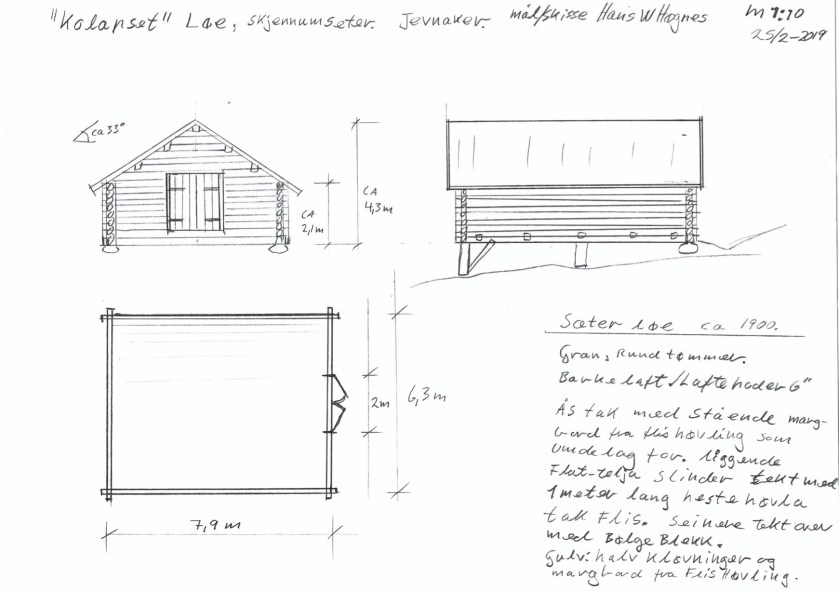 "Kolapset" Løe, skjennumseter. Jevnaker. mål/skisse Hans W Hognes
M 1:70
25/2-2019
ca 33°
CA
4,3 m
CA
2,1 m
2m
6,3 m
7,9 m
Sæter løe ca 1900.
Gran, Rundtømmer.
Barkelaft/Laftehoder 6"
Ås tak med stående marg-
bord fra flishøvling som
underlag for. liggende
Flat-telja slinder tekt med
1 meter lang hestehøvla
tak Flis. seinere Tekt over
med Bølge Blekk.
Gulv: halv kløvninger og
margbord fra Flis Høvling.